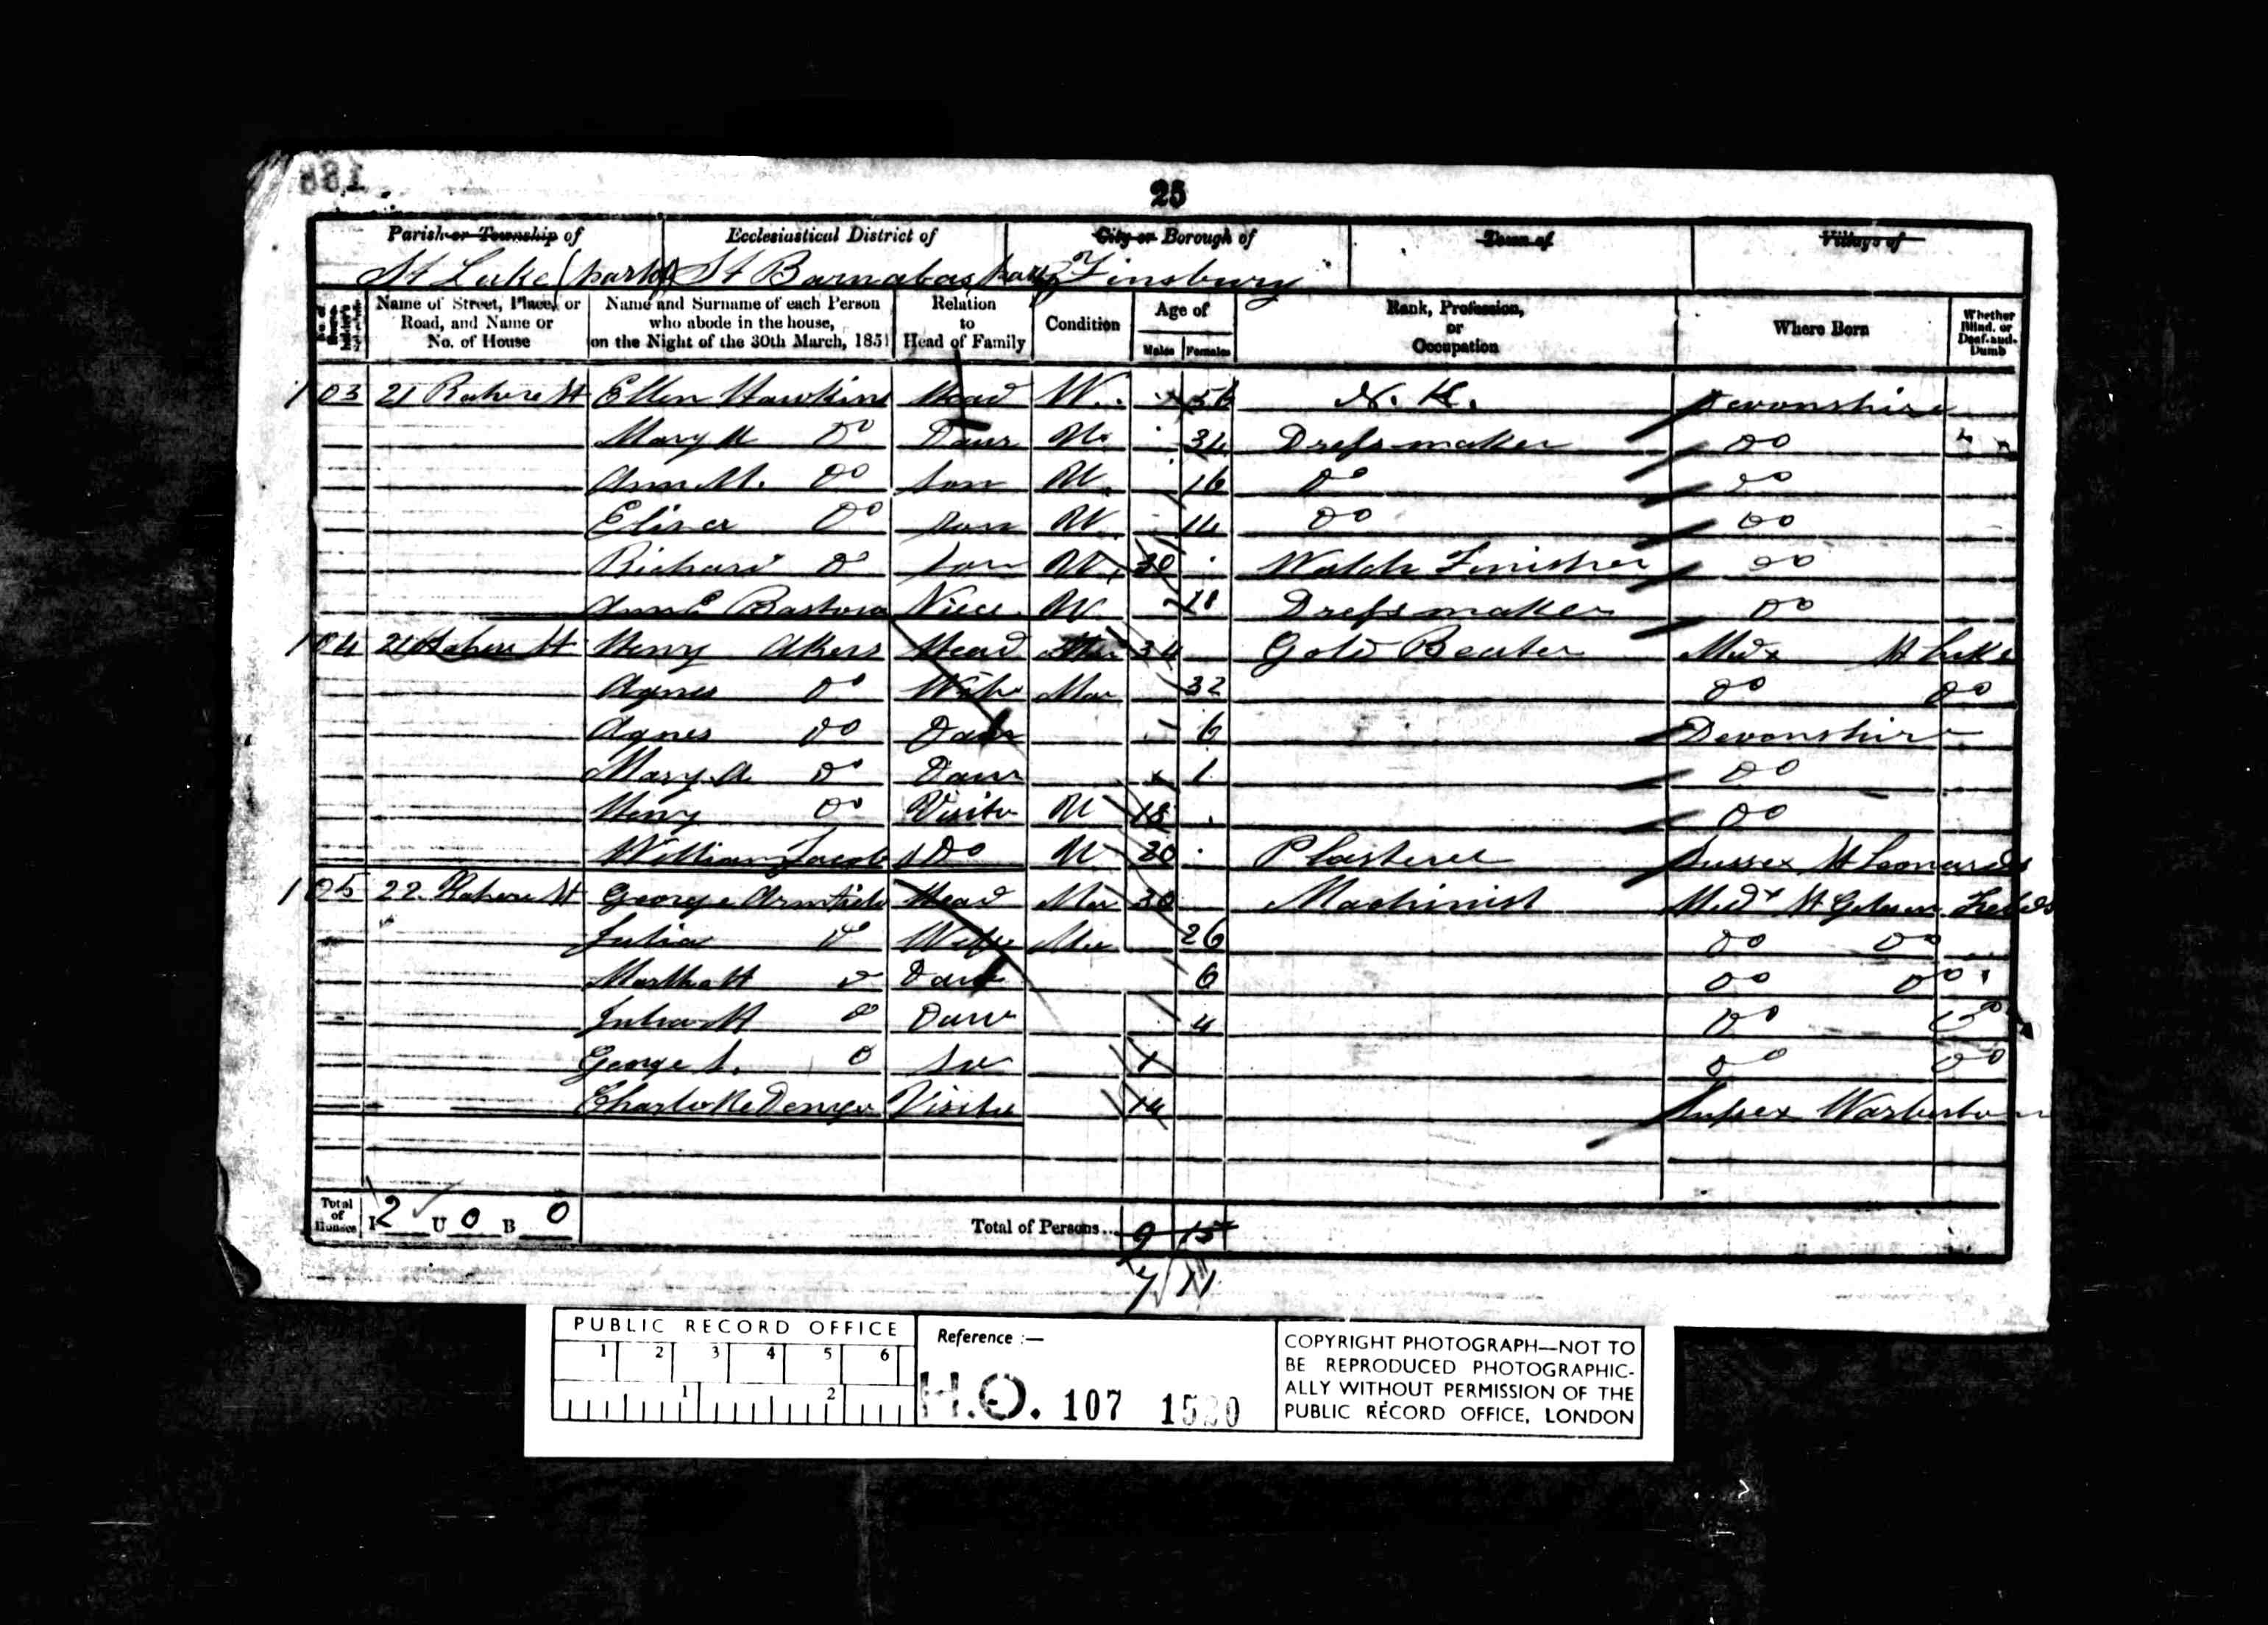 25
Parish or Township of Ecclesiastical District of City or Borough of Town of Village of
St Luke (part of) St Barnabas Finsbury
Name of Street, Place, or Road, and Name or No. of House Name and Surname of each Person who abode in the house, on the Night of the 30th March, 1851 Relation to Head of Family Condition Age of Males Females Rank, Profession, or Occupation Where Born Whether Blind, or Deaf-and-Dumb
103 21 Rahere St Ellen Hawkins Head W. N. K. Devonshire
Mary A Do Daur U 34 Dressmaker Do
Ann M. Do Son U 16 Do Do
Eliza Do Son U 14 Do Do
Richard Do Son U 30 Watch Finisher Do
Ann E Niece U 18 Dressmaker Do
104 21 Rahere St Henry Akers Head Mar 34 Gold Beater Midx St Luke
Agnes Do Wife Mar 32 Do Do
Agnes Do Daur 6 Devonshire
Mary A Do Daur 1 Do
Henry Do Visitor U 18 Do
William Jacob Do U 20 Plasterer Sussex St Leonards
105 22 Rahere St George Armfield Head Mar 30 Machinist Midx St Fields
Julia Do Wife Mar 26 Do Do
Martha H Do Daur 6 Do Do
Julia H Do Daur 4 Do Do
George S. Do Son 1 Do Do
Visitor 14 Sussex
Total of Houses I 2 U 0 B 0 Total of Persons... 9 15
7 11
PUBLIC RECORD OFFICE
1 2 3 4 5 6
1 2
Reference :—
H.O. 107 1520
COPYRIGHT PHOTOGRAPH—NOT TO
BE REPRODUCED PHOTOGRAPHIC-
ALLY WITHOUT PERMISSION OF THE
PUBLIC RECORD OFFICE, LONDON